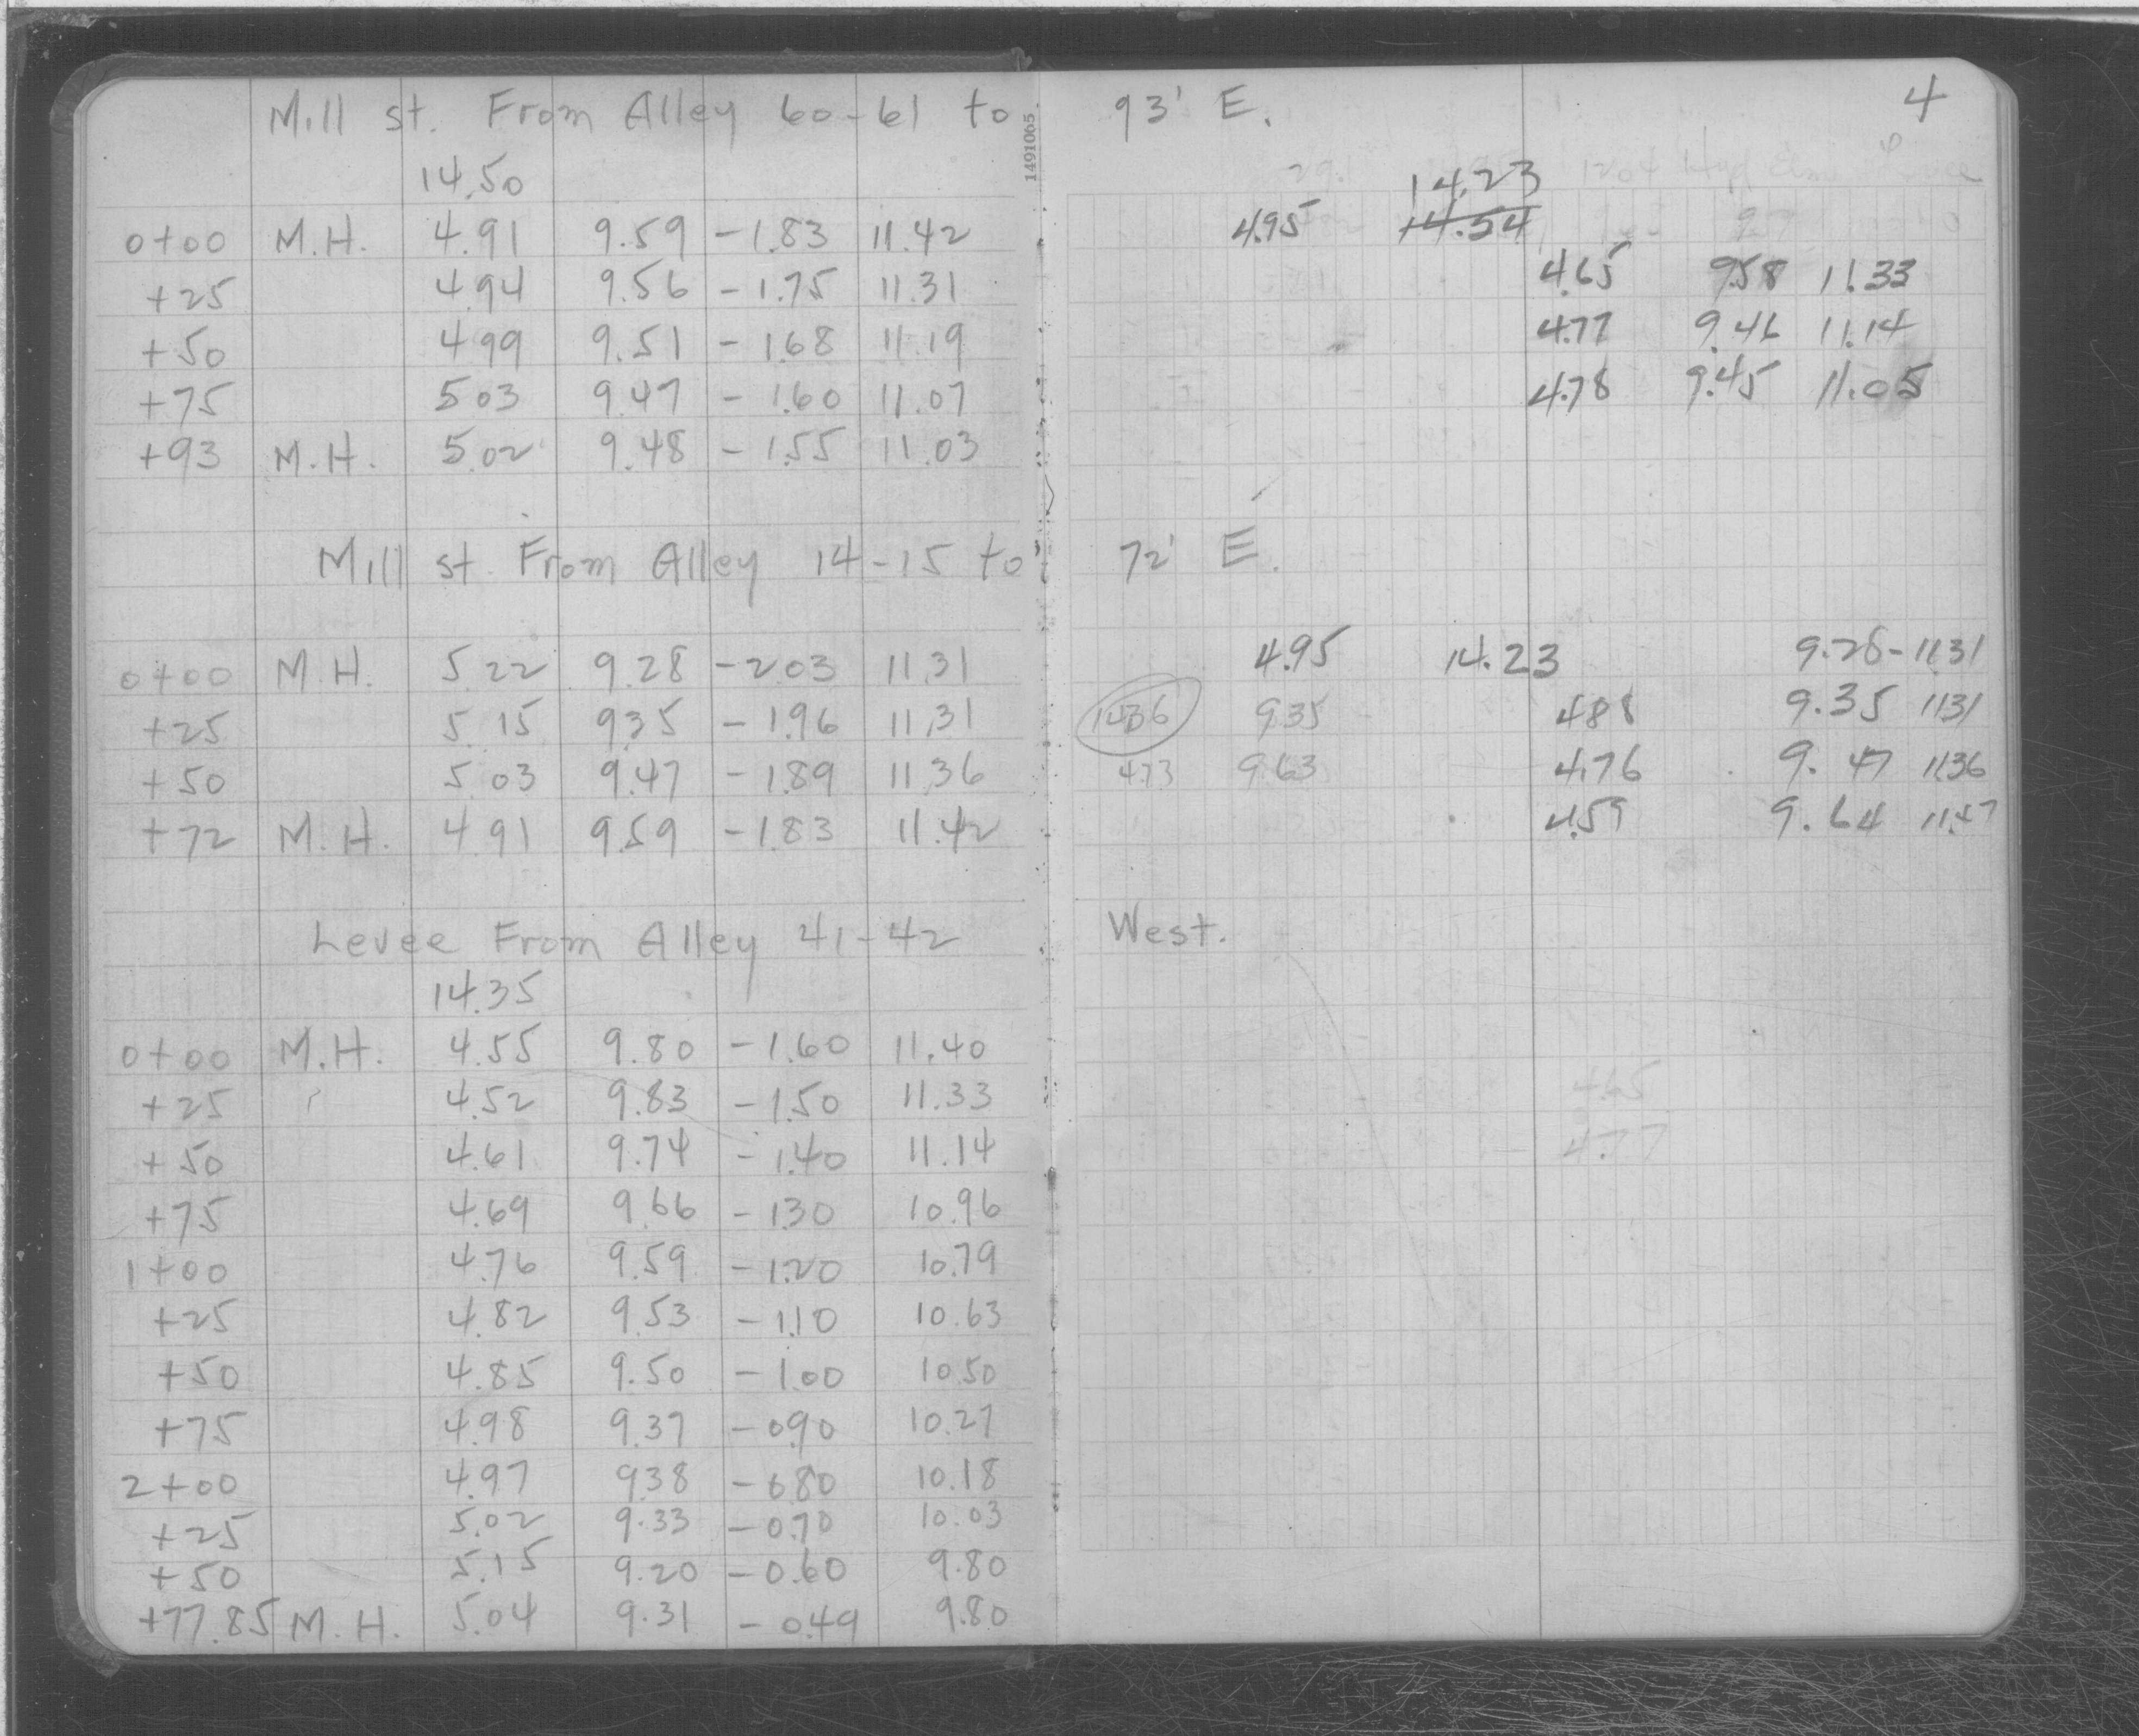 Mill st. From Alley 60-61 to 93' E. 4
14.50
0+00 M.H. 4.91 9.59 -1.83 11.42
+25 4.94 9.56 -1.75 11.31
+50 4.99 9.51 -1.68 11.19
+75 5.03 9.47 -1.60 11.07
+93 M.H. 5.02 9.48 -1.55 11.03
Mill st. From Alley 14-15 to 72' E.
0+00 M.H. 5.22 9.28 -2.03 11.31
+25 5.15 9.35 -1.96 11.31
+50 5.03 9.47 -1.89 11.36
+72 M.H. 4.91 9.59 -1.83 11.42
Levee From Alley 41-42 West.
14.35
0+00 M.H. 4.55 9.80 -1.60 11.40
+25 4.52 9.83 -1.50 11.33
+50 4.61 9.74 -1.40 11.14
+75 4.69 9.66 -1.30 10.96
1+00 4.76 9.59 -1.20 10.79
+25 4.82 9.53 -1.10 10.63
+50 4.85 9.50 -1.00 10.50
+75 4.98 9.37 -0.90 10.27
2+00 4.97 9.38 -0.80 10.18
+25 5.02 9.33 -0.70 10.03
+50 5.15 9.20 -0.60 9.80
+77.85 M.H. 5.04 9.31 -0.49 9.80
1491065
14.23
4.95 14.54
4.65 9.58 11.33
4.77 9.46 11.14
4.78 9.45 11.05
4.95 14.23 9.28-11.31
9.35 4.88 9.35 11.31
4.73 9.63 4.76 9.47 11.36
4.59 9.64 11.47
4.65
4.77